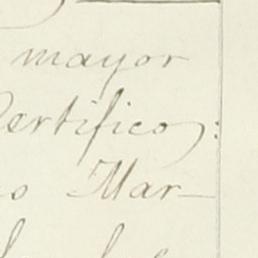 mayor
Certifico:
o Mar-